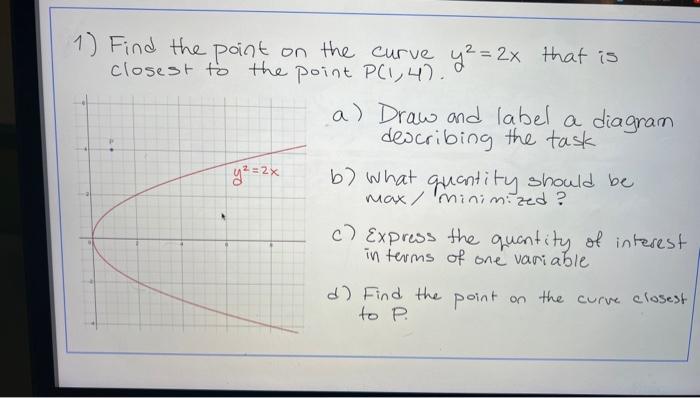 1) Find the point on the curve y² = 2x that is
closest to the point P(1,4).
a) Draw and label a diagram
describing the task
P
y² = 2x
b) what quantity should be
max / minimized ?
c) Express the quantity of interest
in terms of one variable
d) Find the point on the curve closest
to P.